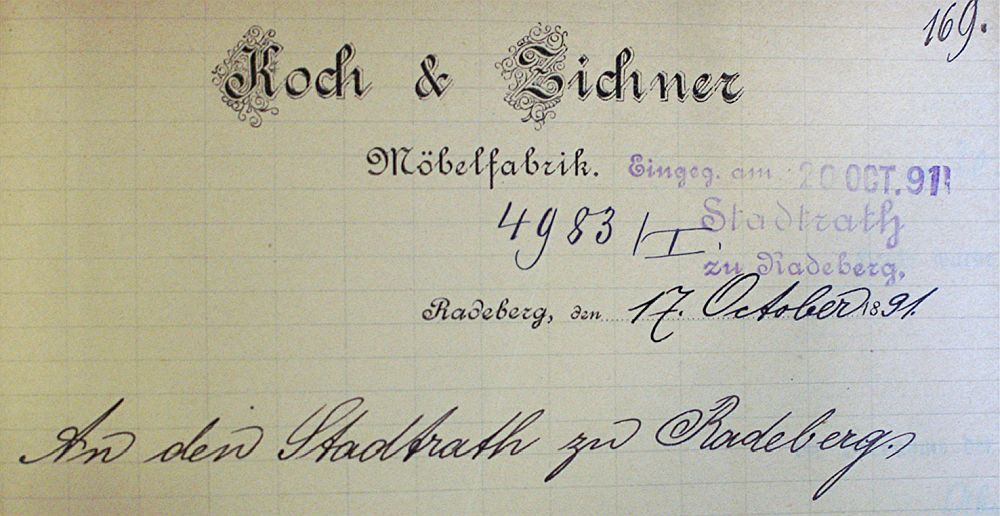 169.
Koch & Zichner
Möbelfabrik.
Eingeg. am 20 OCT. 91
4983/I.
Stadtrath
zu Radeberg,
Radeberg, den 17. October 1891.
An den Stadtrath zu Radeberg.